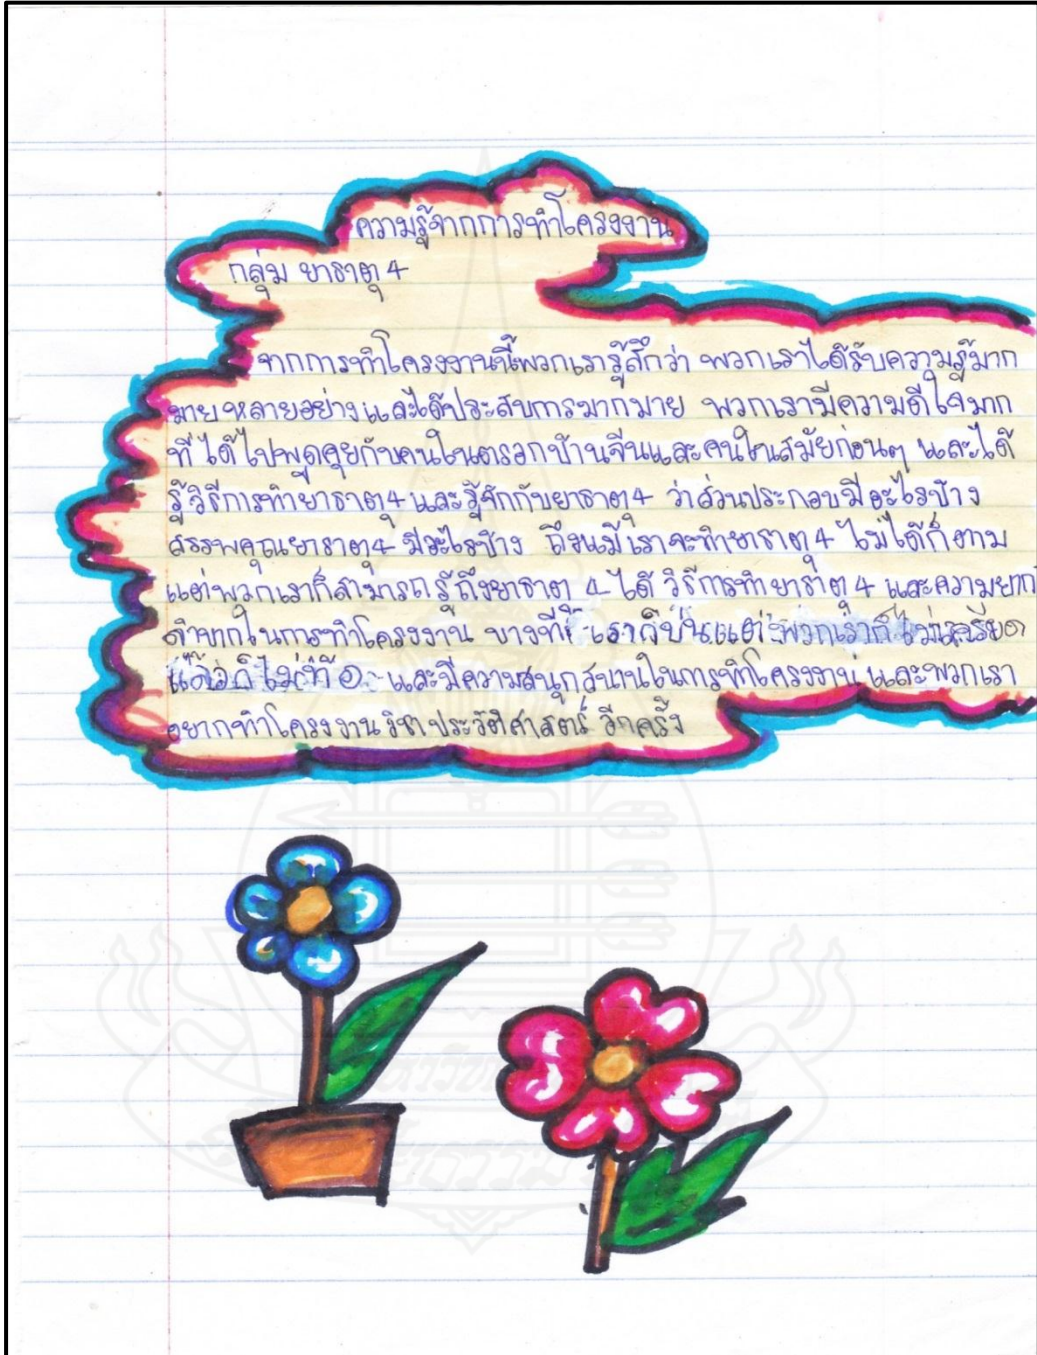 ความรู้จากการทำโครงงาน
กลุ่ม ยาธาตุ 4
จากการทำโครงงานนี้พวกเรารู้สึกว่า พวกเราได้รับความรู้มาก
มาย หลายอย่างและได้ประสบการมากมาย พวกเรามีความดีใจมาก
ที่ได้ไปพูดคุยกับคนในตรอกบ้านจีนและคนในสมัยก่อนๆ และได้
รู้วิธีการทำยาธาตุ4 และรู้จักกับยาธาตุ4 ว่าส่วนประกอบมีอะไรบ้าง
สรรพคุณยาธาตุ4 มีอะไรบ้าง ถึงแม้เราจะทำยาธาตุ4 ไม่ได้ก็ตาม
แต่พวกเราก็สามารถรู้ถึงยาธาตุ 4 ได้ วิธีการทำยาธาตุ 4 และความยาก
ลำบากในการทำโครงงาน บางที เราก็บ่นแต่พวกเราก็ไม่เครียด
แล้วก็ไม่ท้อ และมีความสนุกสนานในการทำโครงงาน และพวกเรา
อยากทำโครงงานวิชาประวัติศาสตร์ อีกครั้ง